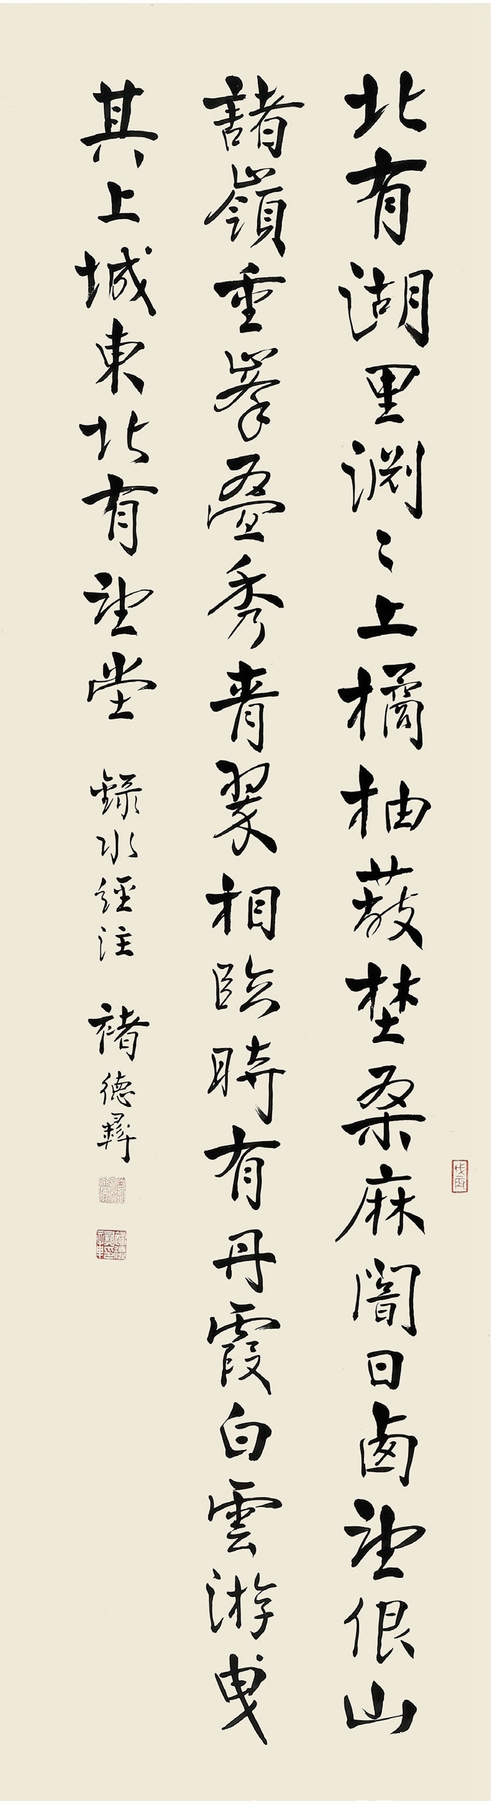 北有湖里渊〻上橘柚蔽埜桑麻闇日卥望佷山
諸嶺重峯叠秀青翠相臨時有丹霞白雲游曳
其上城東北有望堂 錄水經注 褚德彝